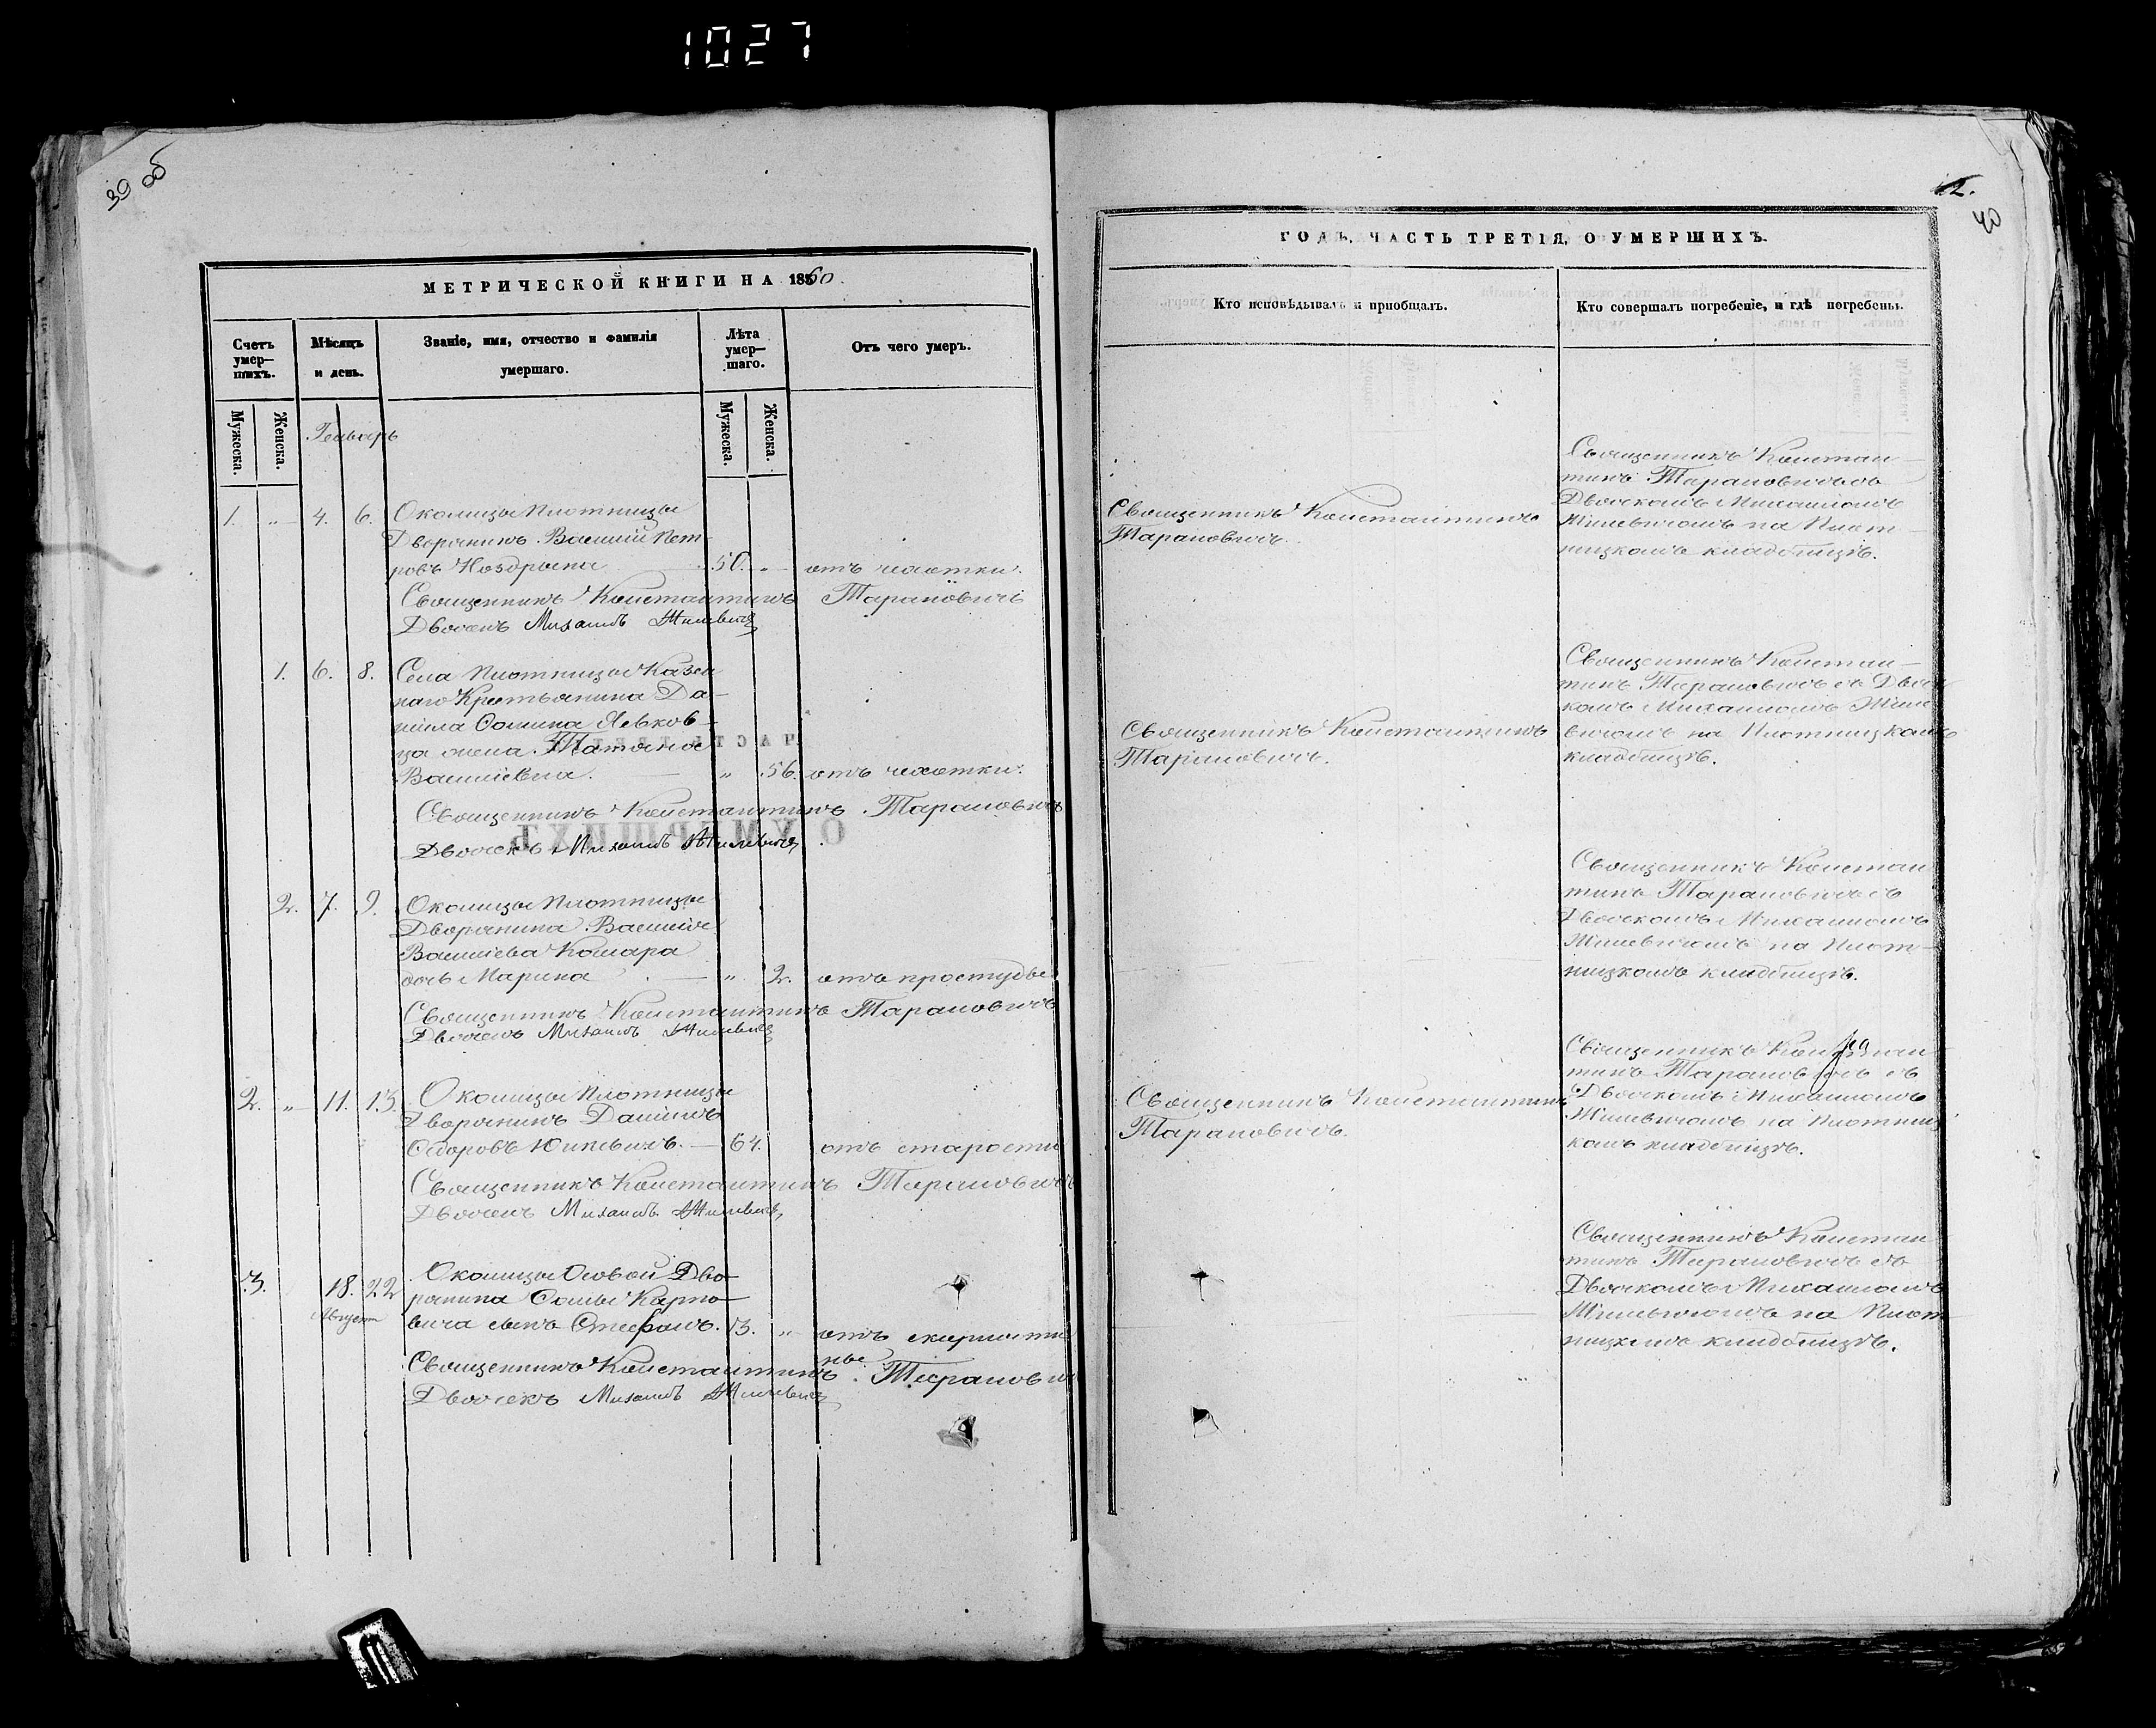 1027
39 об
МЕТРИЧЕСКОЙ КНИГИ НА 1860.
Счетъ умер-шихъ.
Мѣсяцъ и день.
Званіе, имя, отчество и фамилія умершаго.
Лѣта умер-шаго.
Отъ чего умеръ.
Мужеска.
Женска.
Генварь
Мужеска.
Женска.
1. „ 4. 6. Околицы Плотницы
Дворянинъ Василій Пет-
ровъ Ноздрына 50. „ отъ чахотки.
Священникъ Константинъ Тарановичъ
Дьячекъ Михаилъ Жилевичъ
1. 6. 8. Села Плотницы Казен
наго Крестьянина Да-
ніила Ѳомина
ца жена Татьяна
Василіевна. „ 56. отъ чахотки.
Священникъ Константинъ Тарановичъ
Дьячекъ Михаилъ Жилевичъ
2. 7. 9. Околицы Плотницы
Дворянина Василія
Василіева Комара
дочь Марина „ 2. отъ простуды
Священникъ Константинъ Тарановичъ
Дьячекъ Михаилъ Жилевичъ
2. „ 11. 13. Околицы Плотницы
Дворянинъ Даніилъ
64. отъ старости
Священникъ Константинъ Тарановичъ
Дьячекъ Михаилъ Жилевичъ
3. 18. 22 Околицы Осовой Дво-
Августа рянина Ѳомы Карпо-
вича сынъ Стефанъ. 13. „ отъ скарлати
ны
Священникъ Константинъ Таранович
Дьячекъ Михаилъ Жилевичъ
12.
40
ГОДЪ, ЧАСТЬ ТРЕТІЯ, О УМЕРШИХЪ.
Кто исповѣдывалъ и пріобщалъ.
Кто совершалъ погребеніе, и гдѣ погребены.
Священникъ Константинъ
Тарановичъ.
Священникъ Констан-
тинъ Тарановичъ съ
Дьячкомъ Михаиломъ
Жилевичомъ на Плот-
ницкомъ кладбищѣ.
Священникъ Константинъ
Тарановичъ.
Священникъ Констан-
тинъ Тарановичъ съ Дьяч
комъ Михаиломъ Жиле
вичомъ на Плотницкомъ
кладбищѣ.
Священникъ Констан
тинъ Тарановичъ съ
Дьячкомъ Михаиломъ
Жилевичомъ на Плот-
ницкомъ кладбищѣ.
Священникъ Константинъ
Тарановичъ.
Священникъ Констан
тинъ Тарановичъ съ
Дьячкомъ Михаиломъ
Жилевичомъ на Плотниц
комъ кладбищѣ.
Священникъ Констан
тинъ Тарановичъ съ
Дьячкомъ Михаиломъ
Жилевичомъ на Плот
ницкомъ кладбищѣ.